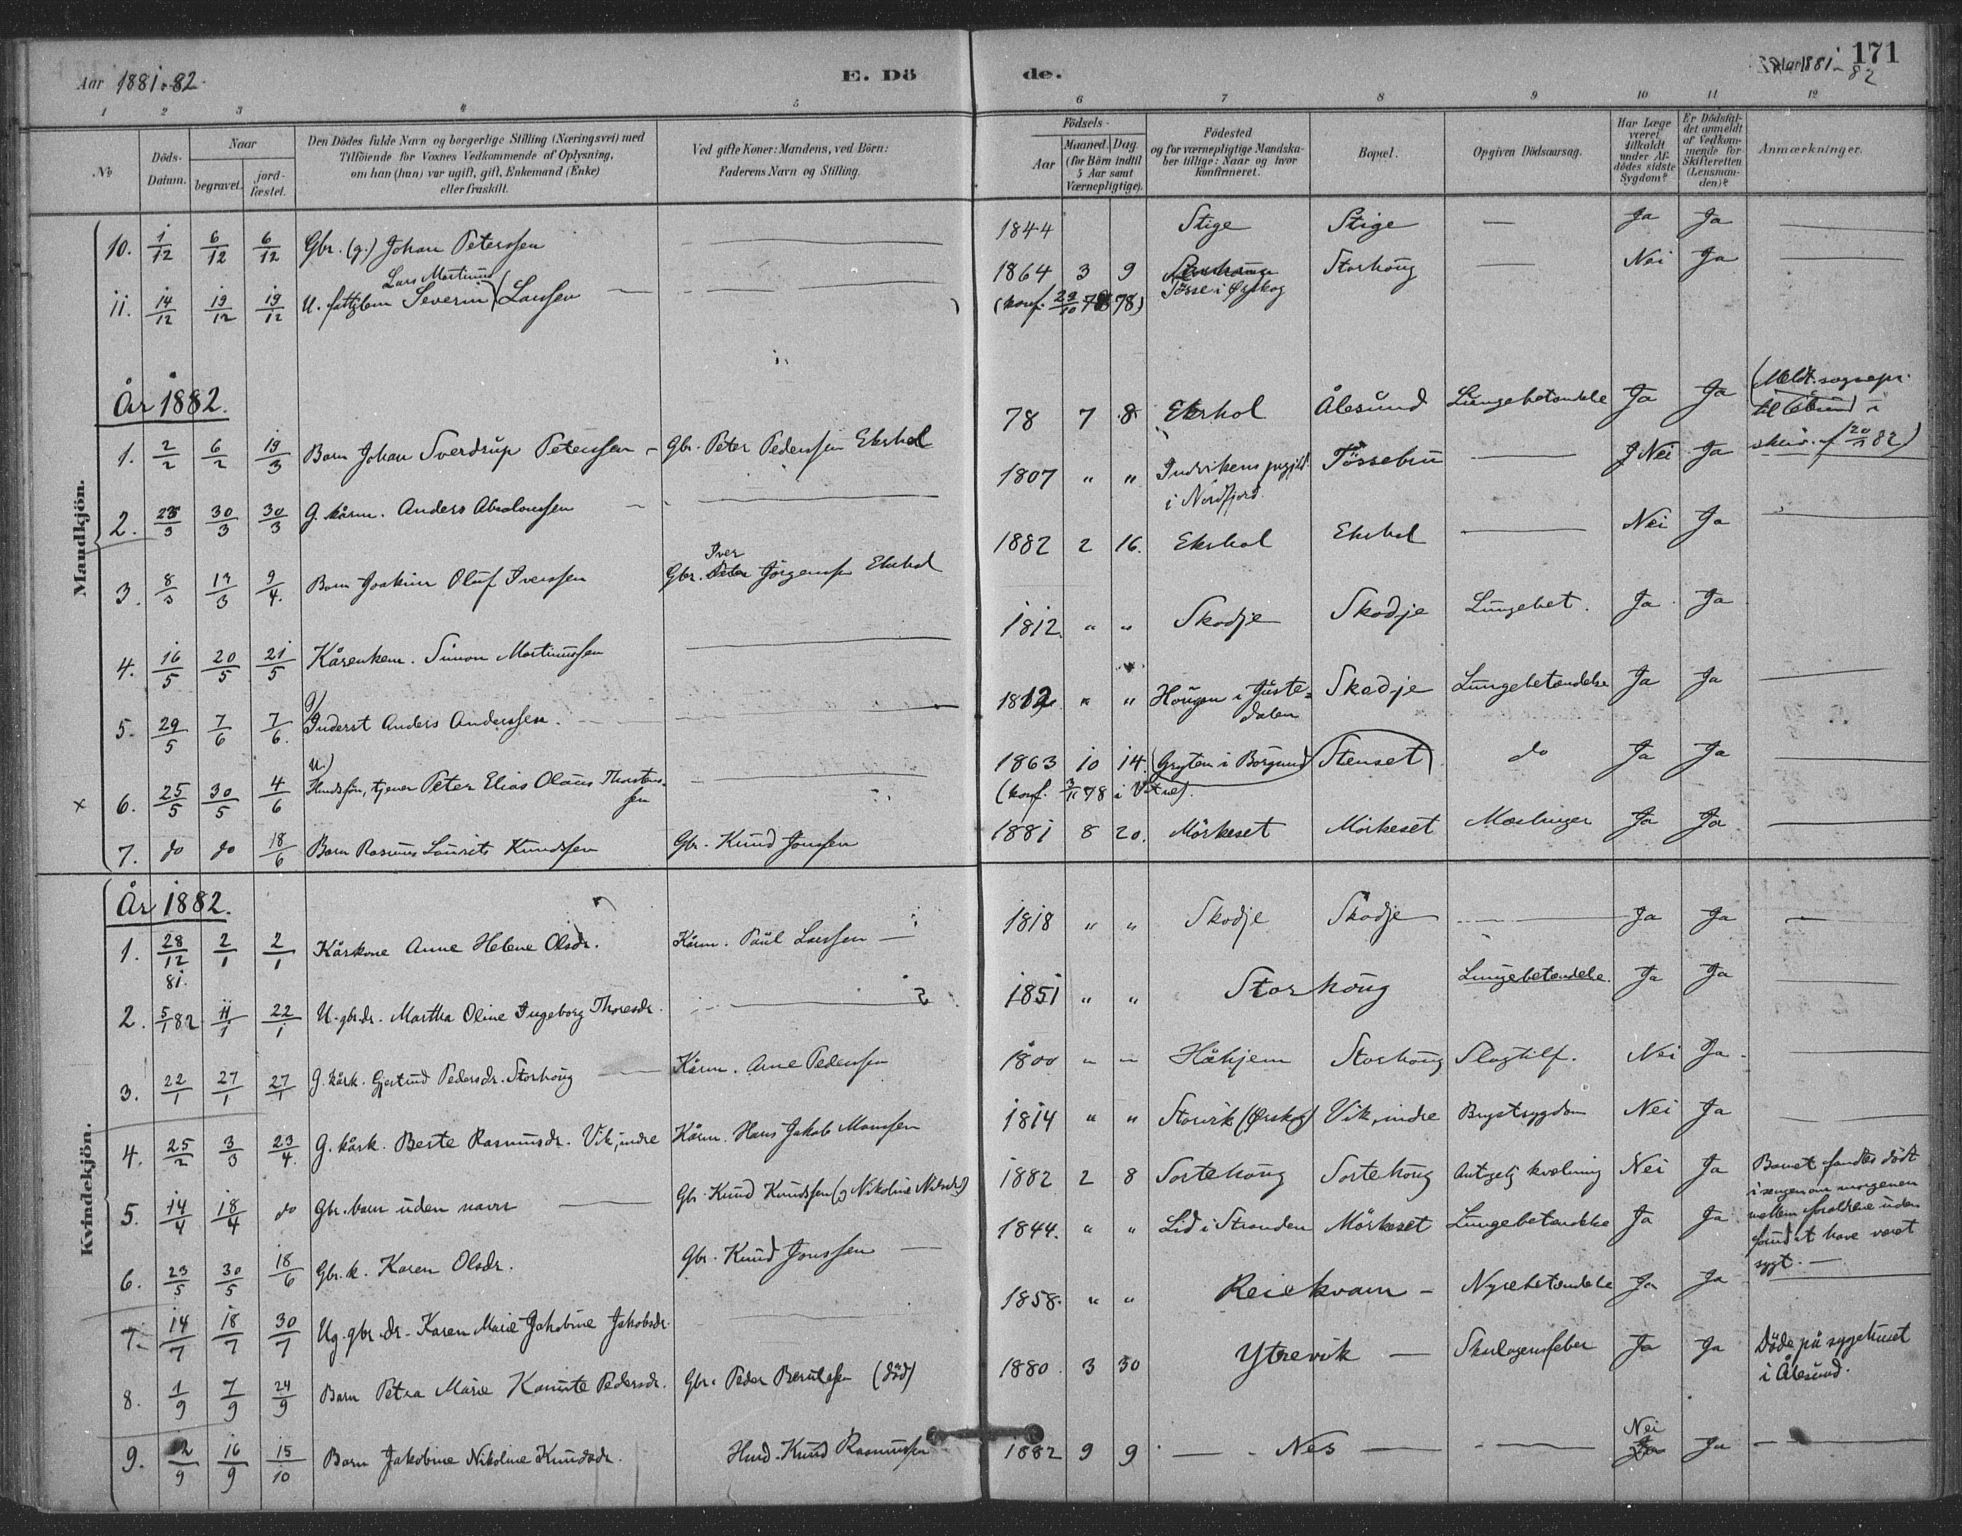 Aar 1881-82. E. Döde. Aar 1881-82 171
1 2 3 4 5 6 7 8 9 10 11 12
No
Döds-Datum.
Naar begravet. jordfæstet.
Den Dödes fulde Navn og borgerlige Stilling (Næringsvei) med Tilföiende for Voxnes Vedkommende af Oplysning, om han (hun) var ugift, gift, Enkemand (Enke) eller fraskilt.
Ved gifte Koner: Mandens, ved Börn: Faderens Navn og Stilling.
Födsels-
Aar
Maaned. Dag.
(for Börn indtil 5 Aar samt Værnepligtige).
Födested og for værnepligtige Mandskaber tillige: Naar og hvor konfirmeret.
Bopæl.
Opgiven Dödsaarsag.
Har Læge været tilkaldt under Afdödes sidste Sygdom?
Er Dödsfaldet anmeldt af Vedkommende for Skifteretten (Lensmanden)?
Anmærkninger.
Mandkjön.
10. 1/12 6/12 6/12 Gbr. (g.) Johan Peterssen — 1844 Stige Stige — Ja Ja —
11. 14/12 19/12 19/12 U. fattiglem Lars Martinus Severin Larssen — 1864 3 9 Tösse i Ørskog Storhoug — Nei Ja —
(konf. 29/10 78)
År 1882.
1. 2/2 6/2 19/3 Barn Johan Sverdrup Peterssen - Gbr. Peter Pederssen Ekrhol 78 7 8 Ekrhol Ålesund Lungebetændelse Ja Ja (Meldt sognepr. til i skriv. af 20/82)
2. 3 30/3 30/3 G. kårm. Anders Absalonssen — 1807 " " Indvikens i Nordfjord. Tössebru — Nei Ja
3. 8/3 19/3 9/4. Barn Joakim Oluf Iverssen Gbr. Iver Jörgenss Ekrhol 1882 2 16. Ekrhol Ekrhol — Nei Ja —
4. 16/5 20/5 21/5 Kårenkem. Simon Martinussen — 1812 " " Skodje Skodje Lungebet. Ja Ja
5. 29/5 7/6 7/6. g) Inderst Anders Anderssen. — 1812 " " Hougen i Justedalen Skodje Lungebetændelse Ja Ja —
x 6. 25/5 30/5 4/6 U.) Husdsön, tjener Peter Elias Olaus Thorstenssen — 1863 10 14. (Gryten i Borgund) Stenset do Ja Ja —
(konf. 3/11 78 i Vatne).
7. do do 18/6 Barn Rasmus Laurits Knudssen Gbr. Knud Jonssen 1881 8 20. Mörkeset Mörkeset Mæslinger Ja Ja —
Kvindekjön.
År 1882.
1. 28/12 81. 2/1 2/1 Kårkone Anne Helene Olsdr. Kårm. Paul Larssen — 1818 " " Skodje Skodje — Ja Ja —
2. 5/1 82 11/1 22/1 U. gbr.dr. Martha Oline Ingeborg Thoresdr. — 1851 " " Storhoug Lungebetændelse. Ja Ja
3. 22/1 27/1 27/1 G. kårk. Gjertrud Pedersdr. Storhoug — Kårm. Arne Pederssen 1800 " " Håhjem Storhoug Slagtilf. Nei Ja —
4. 25/2 3/3 23/4. G. kårk. Berte Rasmusdr. Vik, indre Kårm. Hans Jakob Monssen 1814 " " Storvik (Ørskog) Vik, indre Brystsygdom Nei Ja —
5. 14/4 18/4 do Gbr. barn uden navn — Gbr. Knud Knudssen (og Nikoline Nilsdr.) 1882 2 8 Sortehoug Sortehoug Antagelig kvælning Nei Ja Barnet fandtes dödt i sengen om morgenen mellem forældrene uden at have været sygt. —
6. 23/5 30/5 18/6 Gbr. k. Karen Olsdr. Gbr. Knud Jonssen — 1844. " " Lid i Stranden Mörkeset Lungebetændelse Ja Ja
7. 14/7 18/7 30/7 Ug. gbr. dr. Karen Marie Jakobine Jakobsdr. — 1858. " " Reiekvam - Nyrebetændelse Ja Ja —
8. 1/9 7/9 24/9 Barn Petra Marie Kanutte Pedersdr. Gbr. Peder (död) 1880 3 30 Ytrevik — Skarlagensfeber Ja Ja Döde på sygehuset i Ålesund.
9. 12/9 16/9 15/10 Barn Jakobine Nikoline Knudsdr. Husd. Knud Rasmussen 1882 9 9 — Nes — Nei Ja —